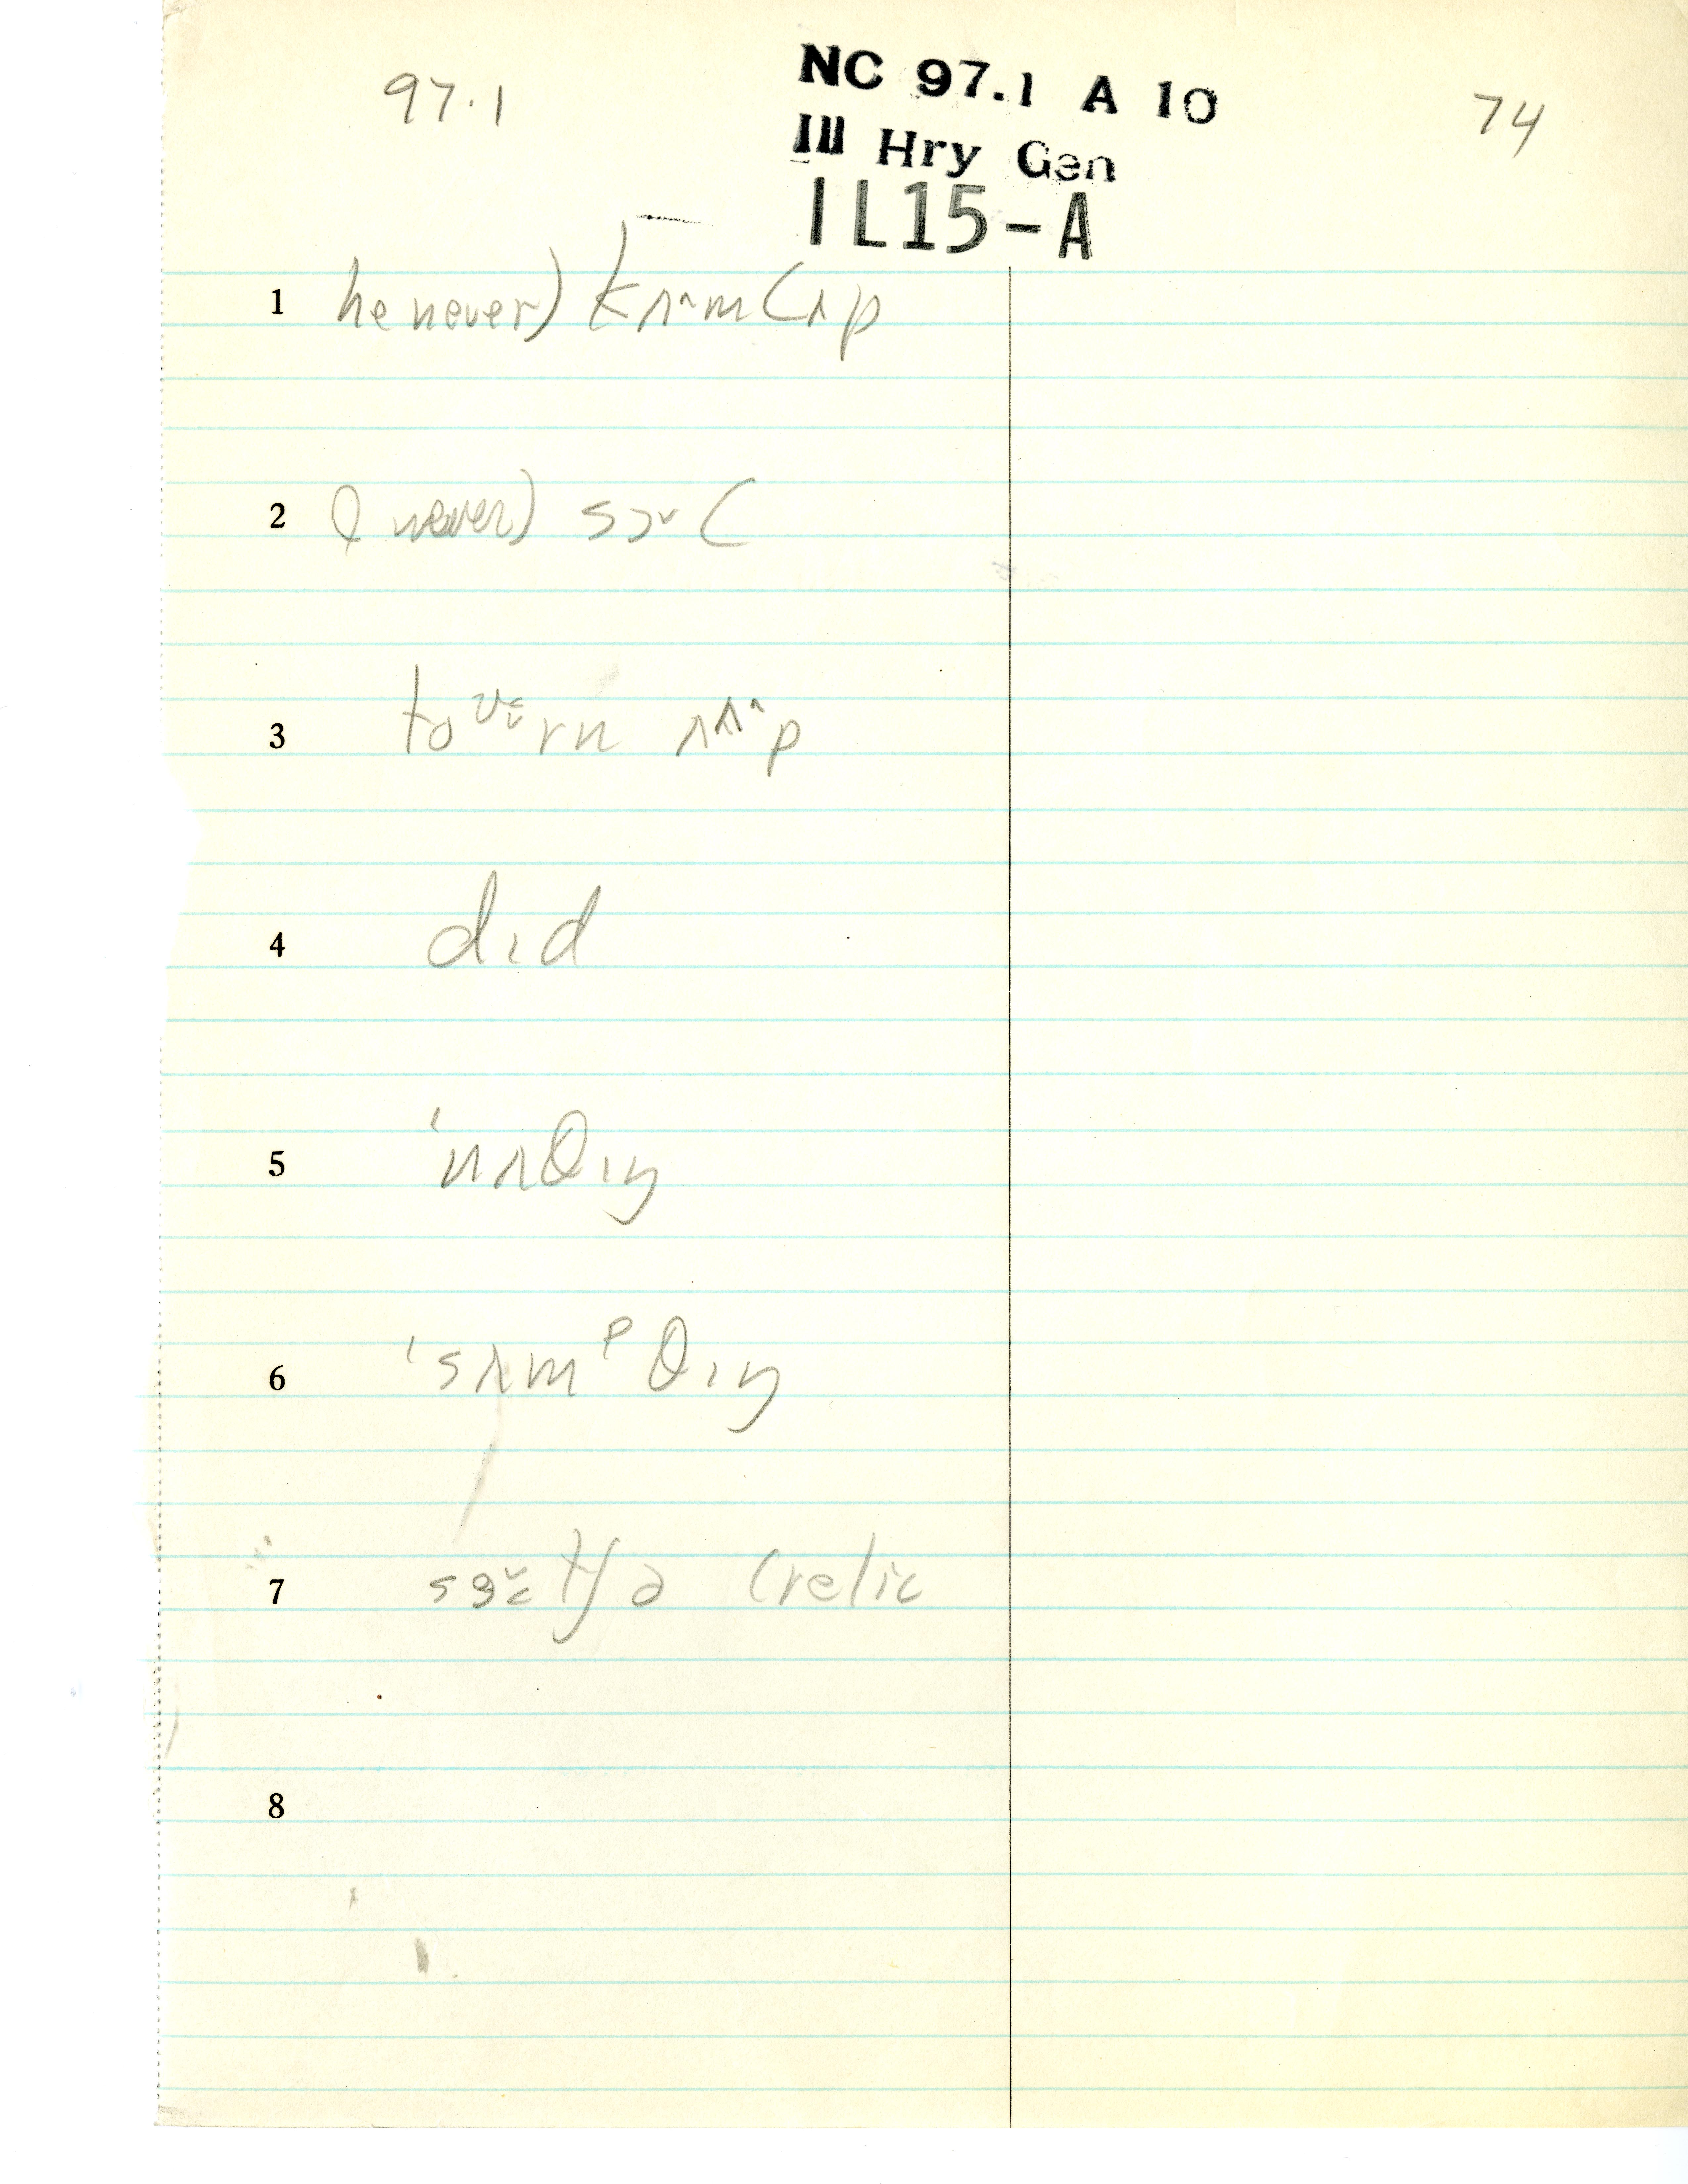 97.1
NC 97.1 A 10
74
Ill Hry Gen
IL15-A
1 he never) kʌ^m (ʌp
2 (never) sɔ˅(
3 to rn ʌʌ^p
4 dɪd
5 ˈnʌθɪŋ
6 ˈsʌmᵖθɪŋ
7 ə (relic
8